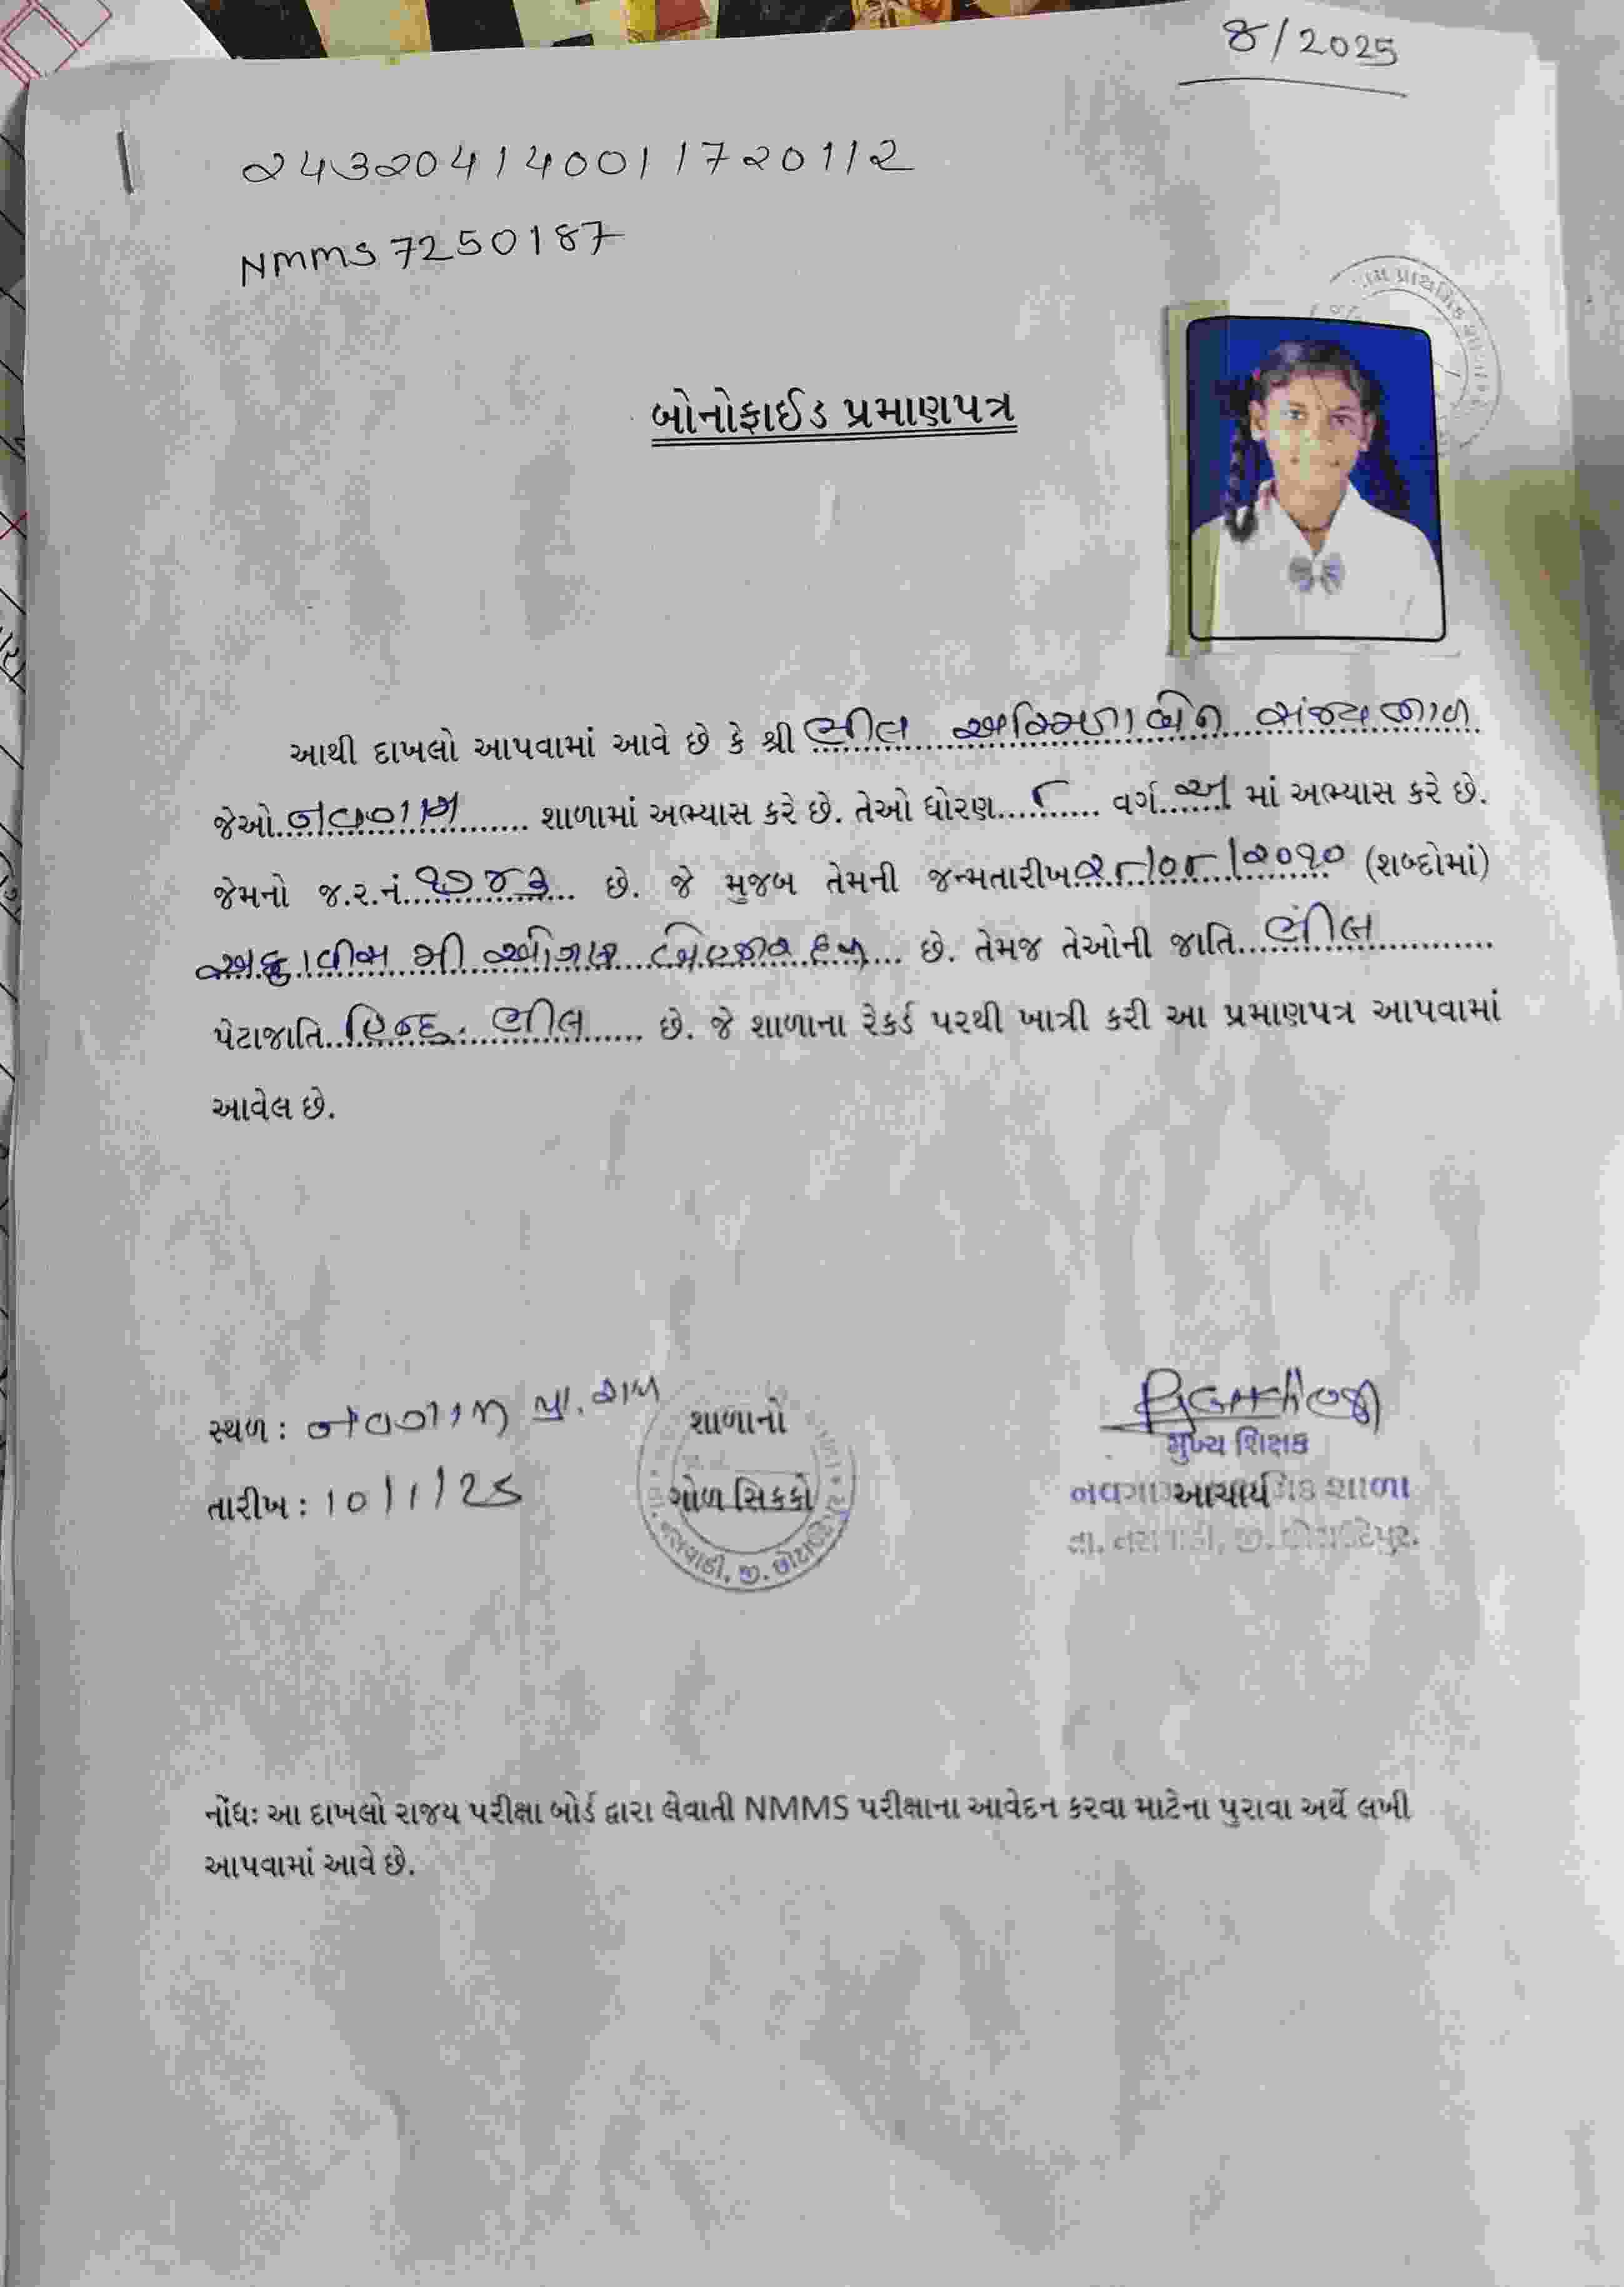 8/2025
243204140011720112
NMMS 7250187
બોનોફાઈડ પ્રમાણપત્ર
આથી દાખલો આપવામાં આવે છે કે શ્રી ભીલ
જેઓ નવાગામ શાળામાં અભ્યાસ કરે છે. તેઓ ધોરણ ૮ વર્ગ અ માં અભ્યાસ કરે છે.
જેમનો જ.ર.નં. ૧૭૪૩ છે. જે મુજબ તેમની જન્મતારીખ ૨૮/૦૮/૨૦૧૦ (શબ્દોમાં)
અઠ્ઠાવીસ મી ઓગષ્ટ બેહજાર દસ છે. તેમજ તેઓની જાતિ ભીલ
પેટાજાતિ હિન્દુ. ભીલ છે. જે શાળાના રેકર્ડ પરથી ખાત્રી કરી આ પ્રમાણપત્ર આપવામાં
આવેલ છે.
સ્થળ : નવાગામ પ્રા. શાળા
શાળાનો
મુખ્ય શિક્ષક
તારીખ : 10/1/25
ગોળ સિક્કો
આચાર્ય શાળા
નસવાડી, જી. છોટાઉદેપુર
નોંધઃ આ દાખલો રાજય પરીક્ષા બોર્ડ દ્વારા લેવાતી NMMS પરીક્ષાના આવેદન કરવા માટેના પુરાવા અર્થે લખી
આપવામાં આવે છે.